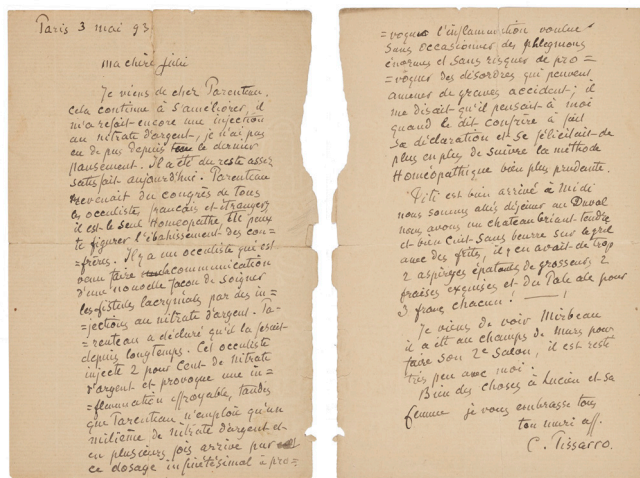 Paris 3 mai 93
ma chère Julie
Je viens de chez Parenteau,
cela continue à s'améliorer, il
m'a refait encore une injection
au nitrate d'argent, je n'ai pas
eu de pus depuis le dernier
pansement. Il a été du reste assez
satisfait aujourd'hui. Parenteau
revenait du congrès de tous
les occulistes, français et étrangers
il est le seul Homéopathe, tu peux
te figurer l'ébahissement des con=
=frères. Il y a un occuliste qui est
venu faire communication
d'une nouvelle façon de soigner
les fistules lacrymales par des in=
=jections au nitrate d'argent. Pa-
=renteau a déclaré qu'il la faisait
depuis longtemps. Cet occuliste
injecte 2 pour Cent de nitrate
d'argent et provoque une in=
=flammation effroyable, tandis
que Parenteau n'emploie qu'un
milième de nitrate d'argent et
en plusieurs fois arrive par
ce dosage infinitésimal à pro=
=voquer l'inflammation voulue
sans occasionner des phlegmons
énormes et sans risquer de pro=
=voquer des désordres qui peuvent
amener de graves accident; il
me disait qu'il pensait à moi
quand le dit confrère à fait
sa déclaration et se félicitait de
plus en plus de suivre la méthode
Homéopathique bien plus prudente.
Titi est bien arrivé à Midi
nous sommes allés déjeuner au Duval
nous avons un chateaubriant tendre
et bien cuit sans beurre sur le gril
avec des frites, il y en avait de trop
2 asperges épatantes de grosseur, 2
fraises exquises et du Pale ale pour
3 francs chacun!
Je viens de voir Mirbeau
il a été au champs de Mars pour
faire son 2e Salon, il est resté
très peu avec moi.
Bien des choses à Lucien et sa
femme je vous embrasse tous
ton mari aff.
C. Pissarro.